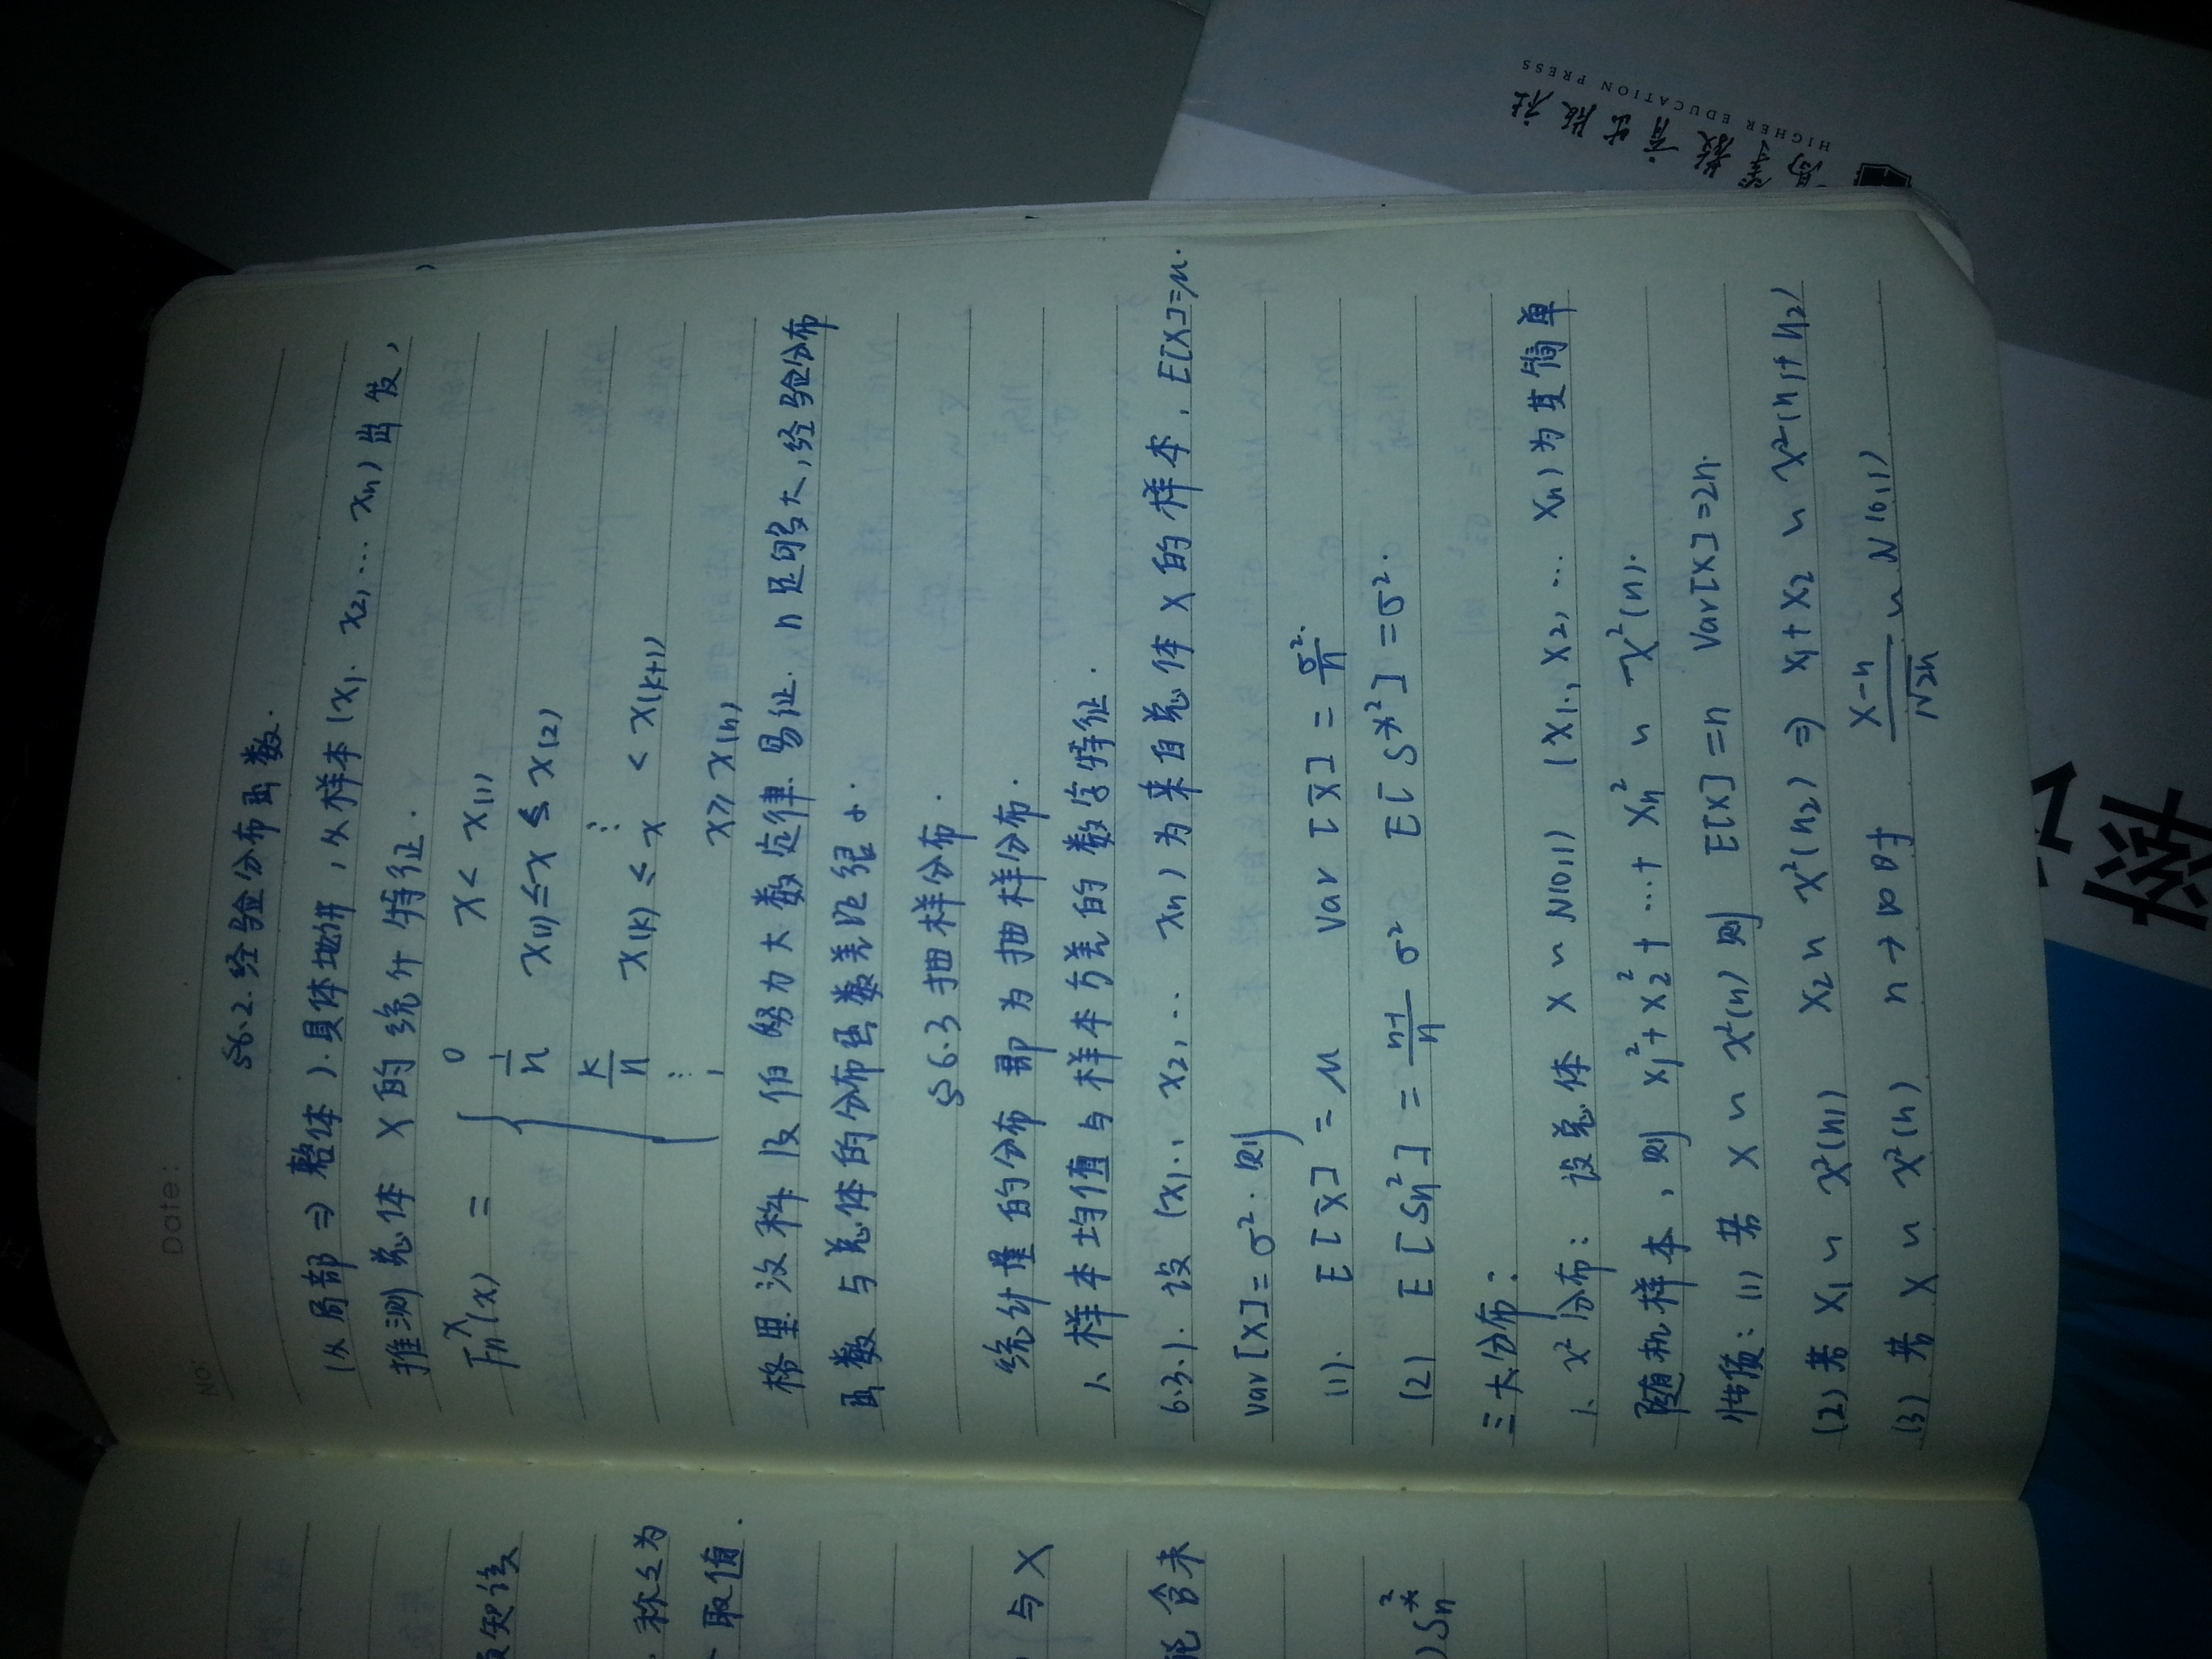 No:
Date:
§6.2. 经验分布函数.
(从局部 ⇒ 整体). 具体地讲, 从样本 (x₁. x₂, … xₙ) 出发,
推测总体 X 的统计特征.
Fₙˣ(x) =
0 x < x₍₁₎
1/n x₍₁₎ ≤ x ≤ x₍₂₎
⋮
k/n x(k) ≤ x < x(k+1)
⋮
1 x ≥ x(n)
格里汶科 及伯努力大数定律. 易证. n 足够大, 经验分布
函数 与总体的分布函数差距很小.
§6.3 抽样分布.
统计量的分布 即为抽样分布.
1、样本均值与样本方差的数字特征.
6.3.1. 设 (x₁., x₂, … xₙ) 为来自总体 X 的样本, E[X]=μ.
var[X]=σ². 则
(1). E[x̄] = μ var[x̄] = σ²/n
(2) E[Sₙ²] = n-1/n σ² E[S*²] = σ².
三大分布:
1、χ²分布: 设总体 X ~ N(0,1) (X₁., X₂, … Xₙ) 为其简单
随机样本, 则 X₁²+X₂²+…+Xₙ² ~ χ²(n).
性质: (1) 若 X ~ χ²(n) 则 E[X]=n Var[X]=2n.
(2) 若 X₁ ~ χ²(n₁) X₂ ~ χ²(n₂) ⇒ X₁+X₂ ~ χ²(n₁+n₂)
(3) 若 X ~ χ²(n) n→∞时 X-n/√2n ~ N(0,1)
知该
称之为
取值.
与X
含未
Sₙ*²
高等教育出版社
HIGHER EDUCATION PRESS